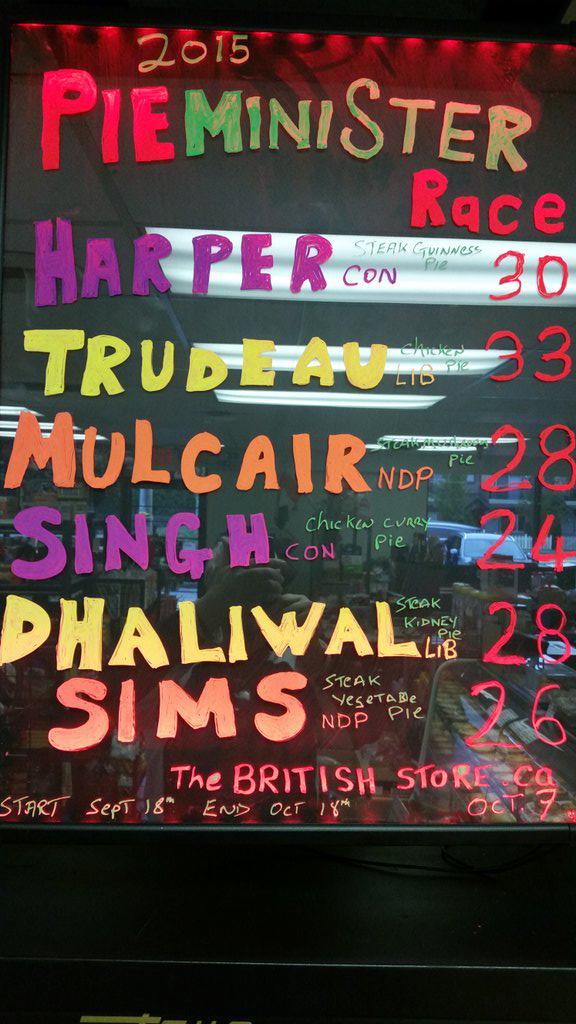 2015
PIEMINISTER
Race
HARPER CON STEAK GUINNESS PIE 30
TRUDEAU LIB CHICKEN PIE 33
MULCAIR NDP STEAK MUSHROOM PIE 28
SINGH CON CHICKEN CURRY PIE 24
DHALIWAL LIB STEAK KIDNEY PIE 28
SIMS NDP STEAK VEGETABLE PIE 26
The BRITISH STORE.ca
START SEPT 18TH END OCT 18TH OCT. 7